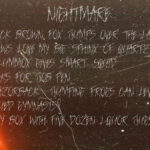 NIGHTMARE
CK BROWN FOX JUMPS OVER THE LA
WS LOVE MY BIG SPHINX OF QUARTZ
LUMMOX GIVES SMART SQUID
KS FOR TOB PEN.
AZORBACK JUMPING FROGS CAN LEVE
XED GYMNASTS
MY BOX WITH FIVE DOZEN LIQUOR JUGS